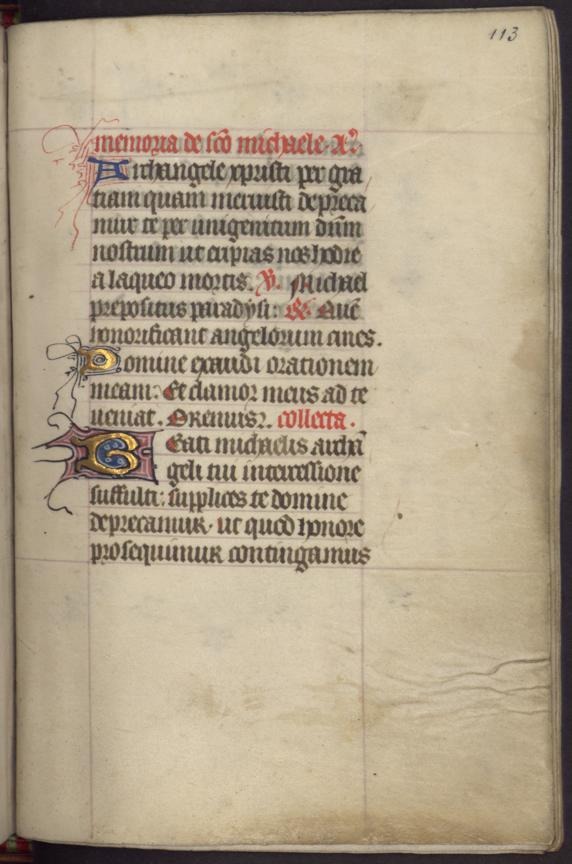 113
memoria de sco michaele. A?
Archangele xpristi per gra
tiam quam meruisti depreca
mur te per unigenitum dnm
nostrum ut eripias nos hodie
a laqueo mortis. V. Michael
prepositus paradysi: R. Que
honorificant angelorum ciues.
Domine exaudi orationem
meam: Et clamor meus ad te
ueniat. Oremus. collecta.
Beati michaelis archa
geli tui intercessione
suffulti: supplices te domine
deprecamur. ut quod honore
prosequimur contingamus